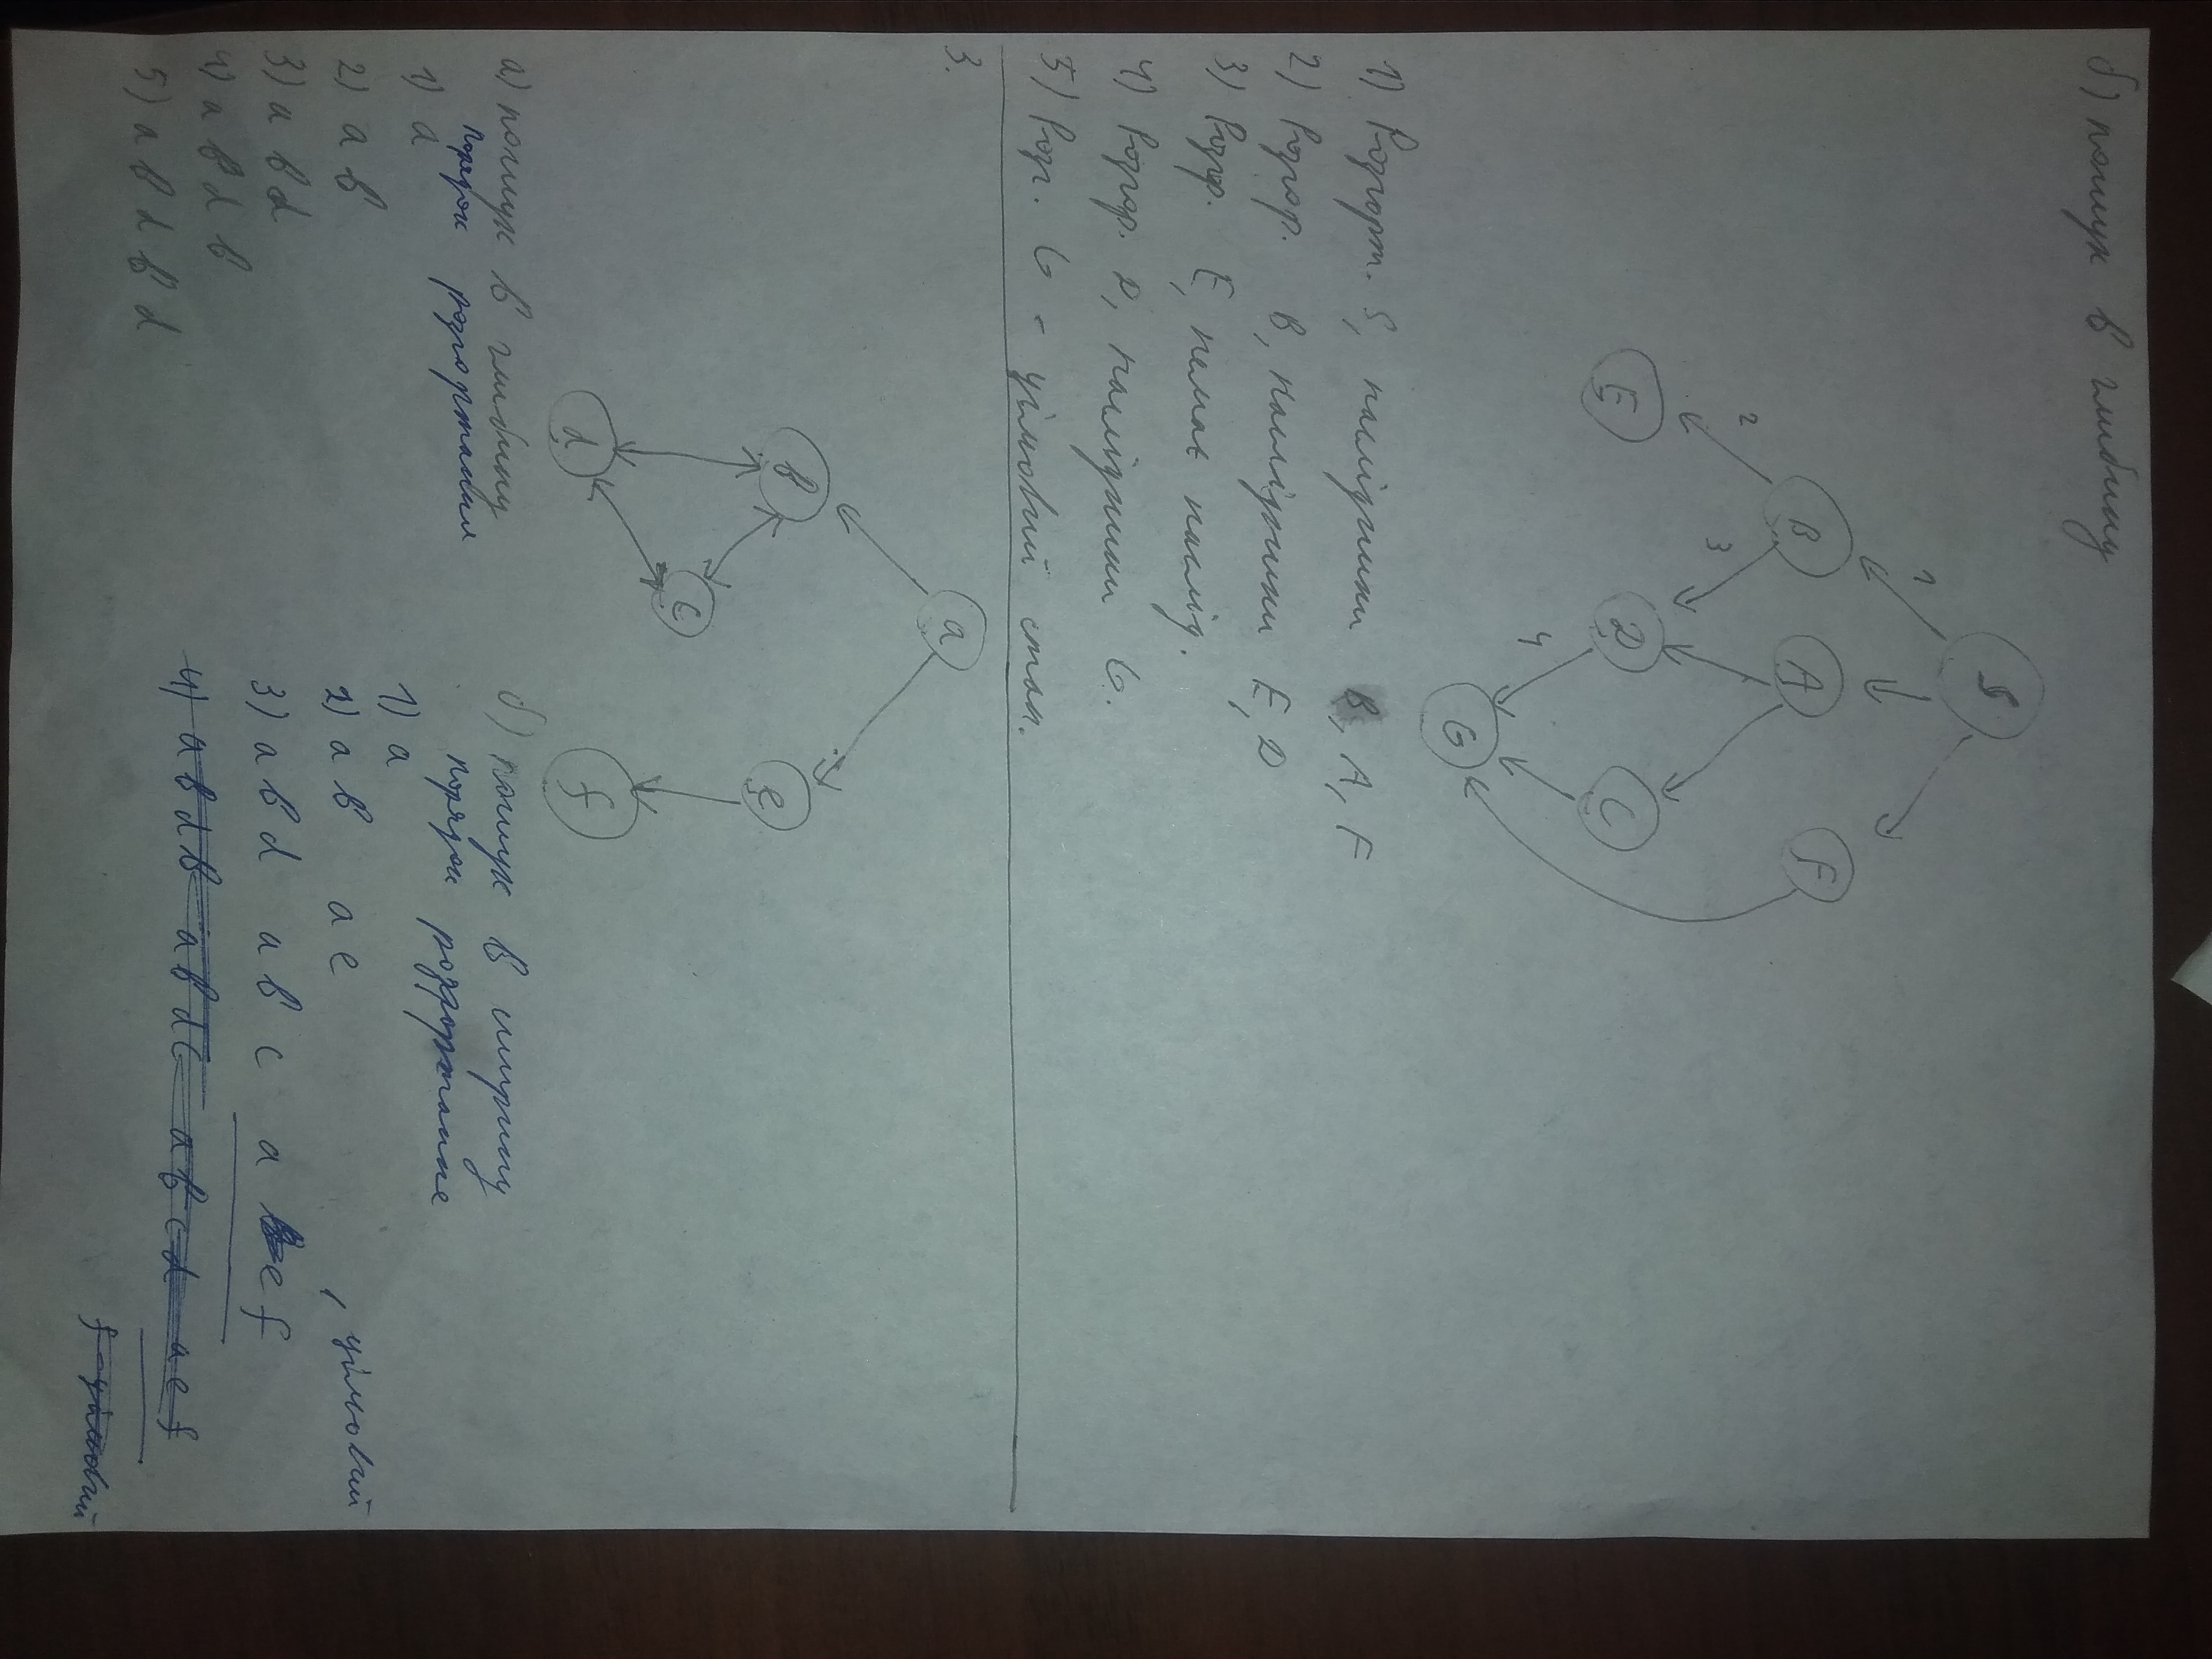 б) пошук в глибину
S
1
B
A
F
2
3
E
D
C
4
G
1) Розгорт. S, наслідники B, A, F
2) Розгор. B, наслідники E, D
3) Розгор. E, немає наслід.
4) Розгор. D, наслідники G.
5) Розг. G - цільовий стан.
3.
a
b
e
c
d
f
а) пошук в глибину
порядок розгортання
1) a
2) a b
3) a b d
4) a b d b
5) a b d b d
б) пошук в ширину
порядок розгортання
1) a
2) a b a e
3) a b d a b c a e f , цільовий
4) a b d b a b d c a b c d a e f
f - цільовий